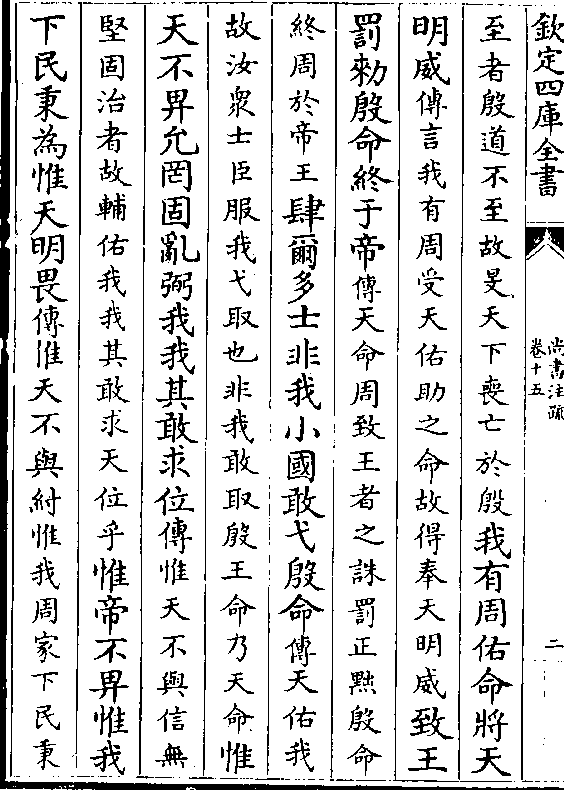 欽定四庫全書
尚書注疏
卷十五
二
至者殷道不至故旻天下喪亡於殷我有周佑命將天
明威傳言我有周受天佑助之命故得奉天明威致王
罰勑殷命終于帝傳天命周致王者之誅罰正黜殷命
終周於帝王肆爾多士非我小國敢弋殷命傳天佑我
故汝衆士臣服我弋取也非我敢取殷王命乃天命惟
天不畀允罔固亂弼我我其敢求位傳惟天不與信無
堅固治者故輔佑我我其敢求天位乎惟帝不畀惟我
下民秉為惟天明畏傳惟天不與紂惟我周家下民秉